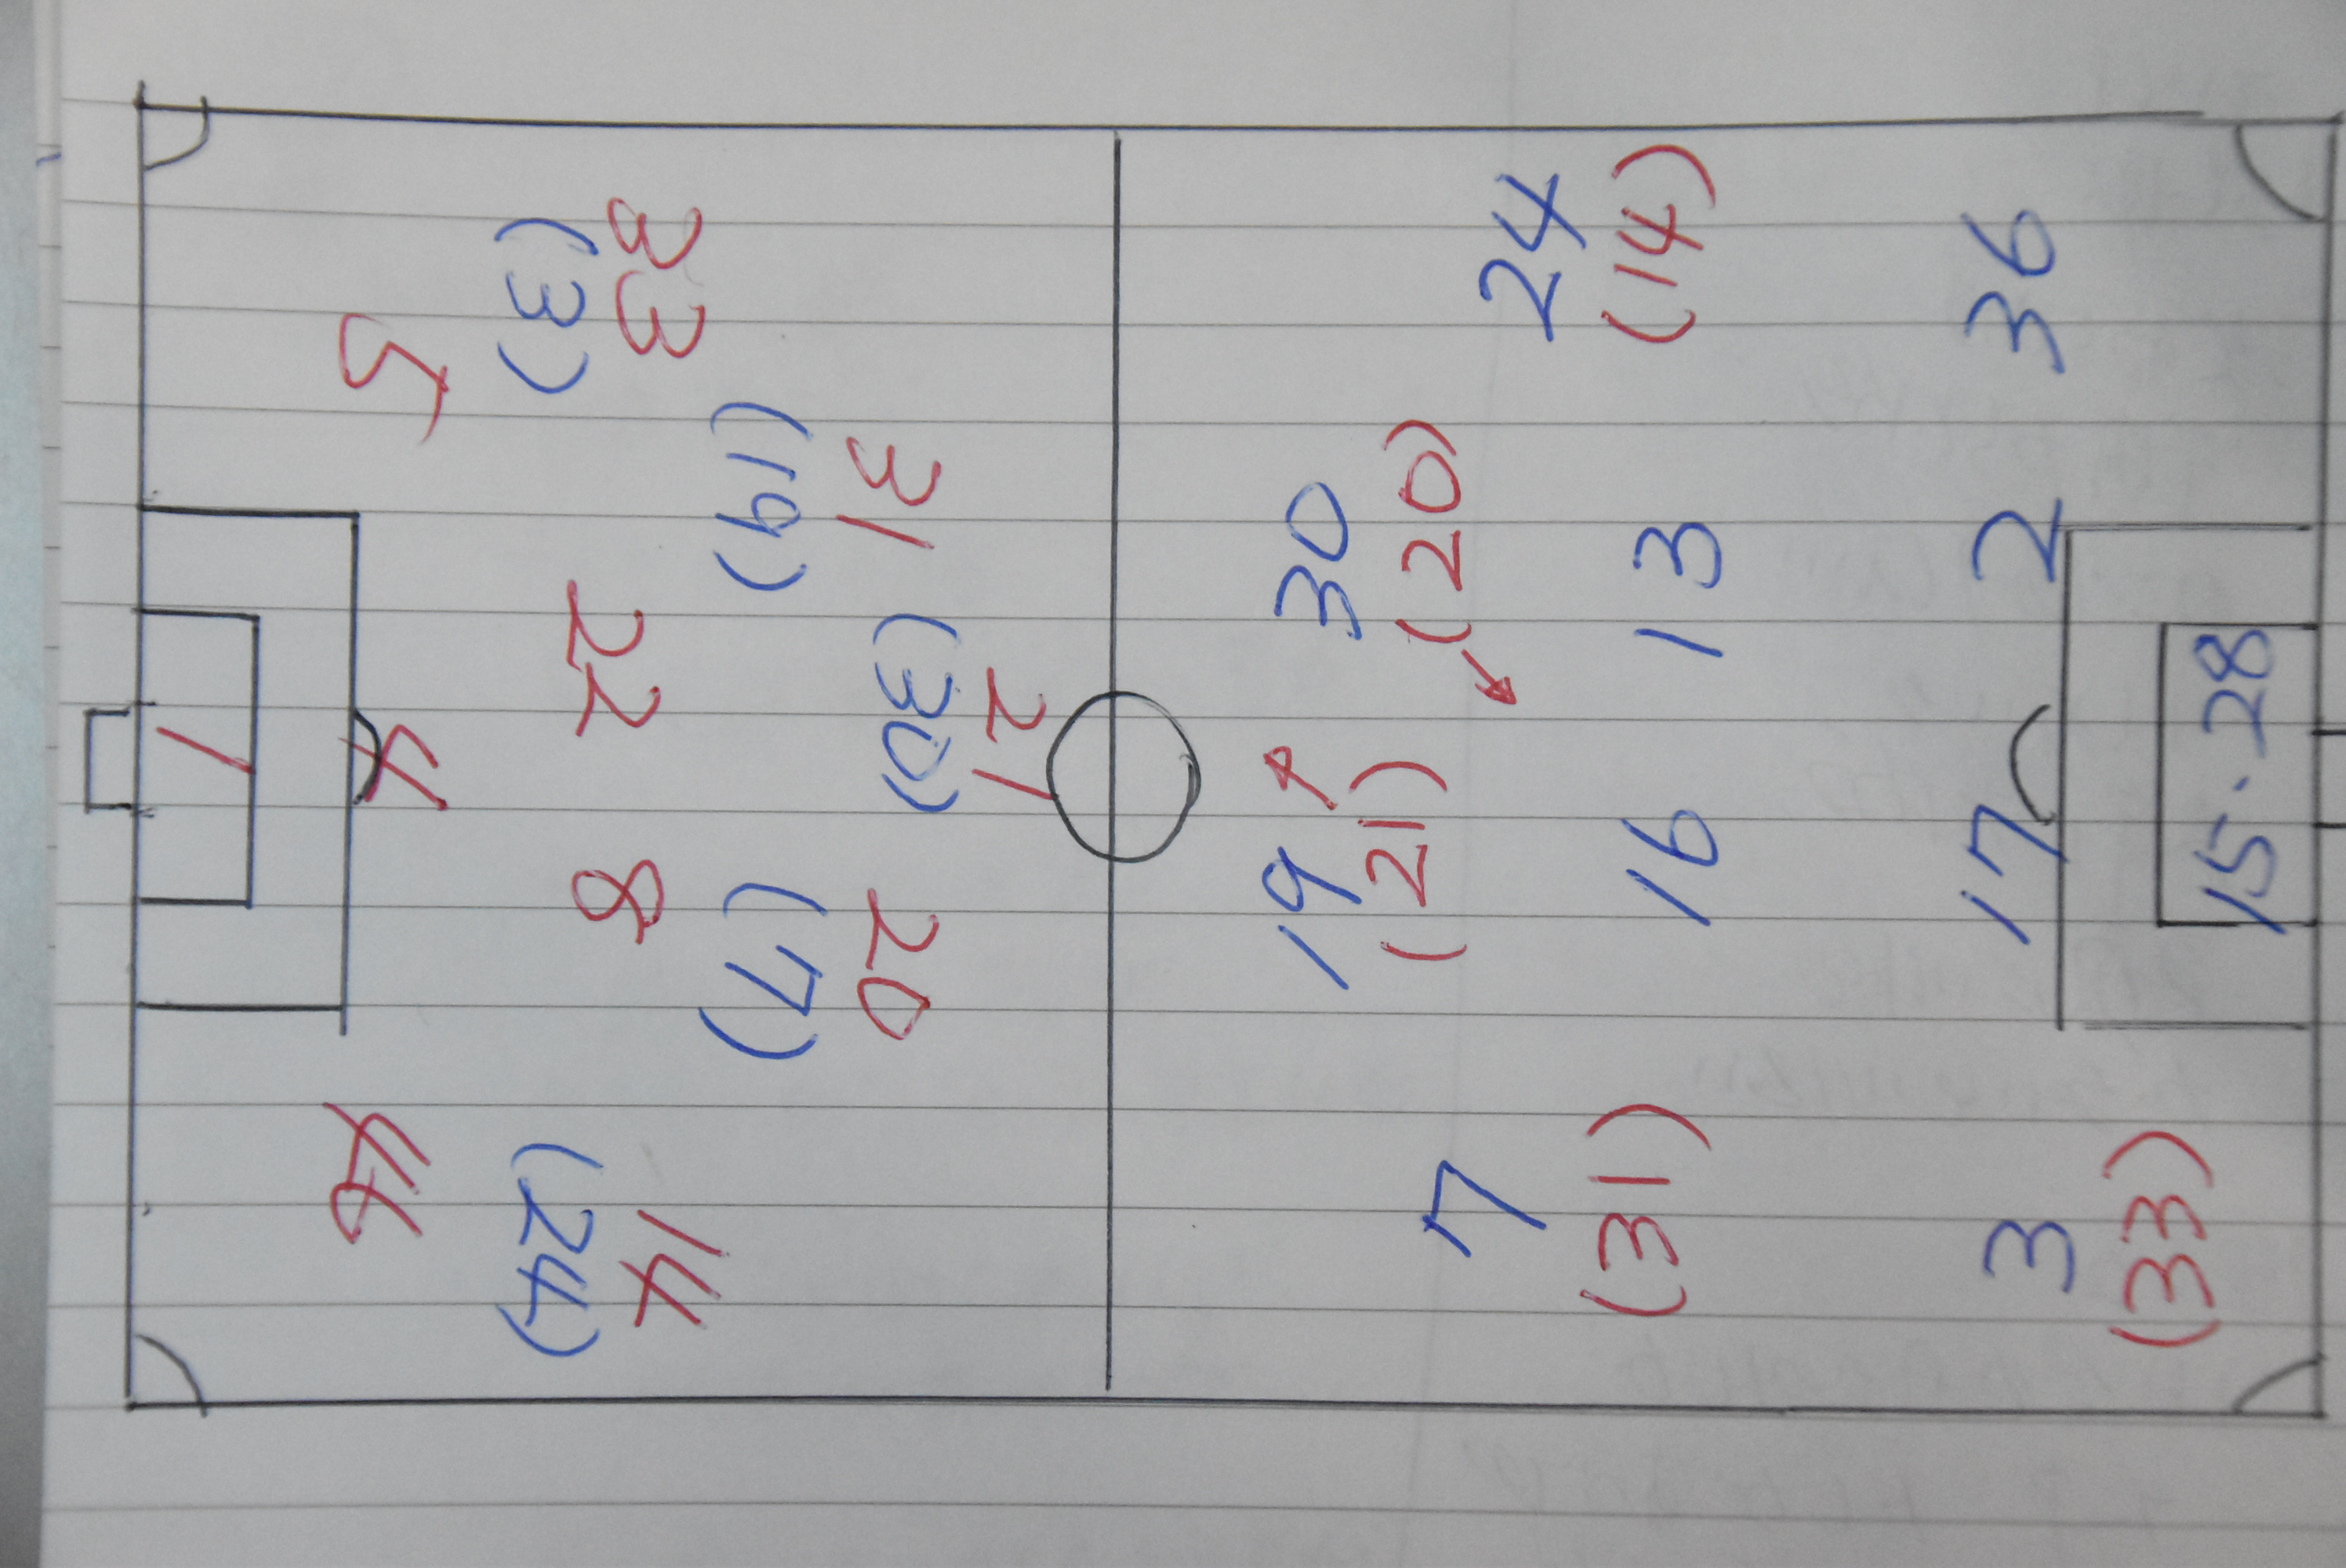 21
(30)
31 20
(19) (7)
33 14
22 8
(3) (24)
5 4 46
1
19 30
(21) (20)
7 24
(31) (14)
16 13
3 17 2 36
(33)
15・28